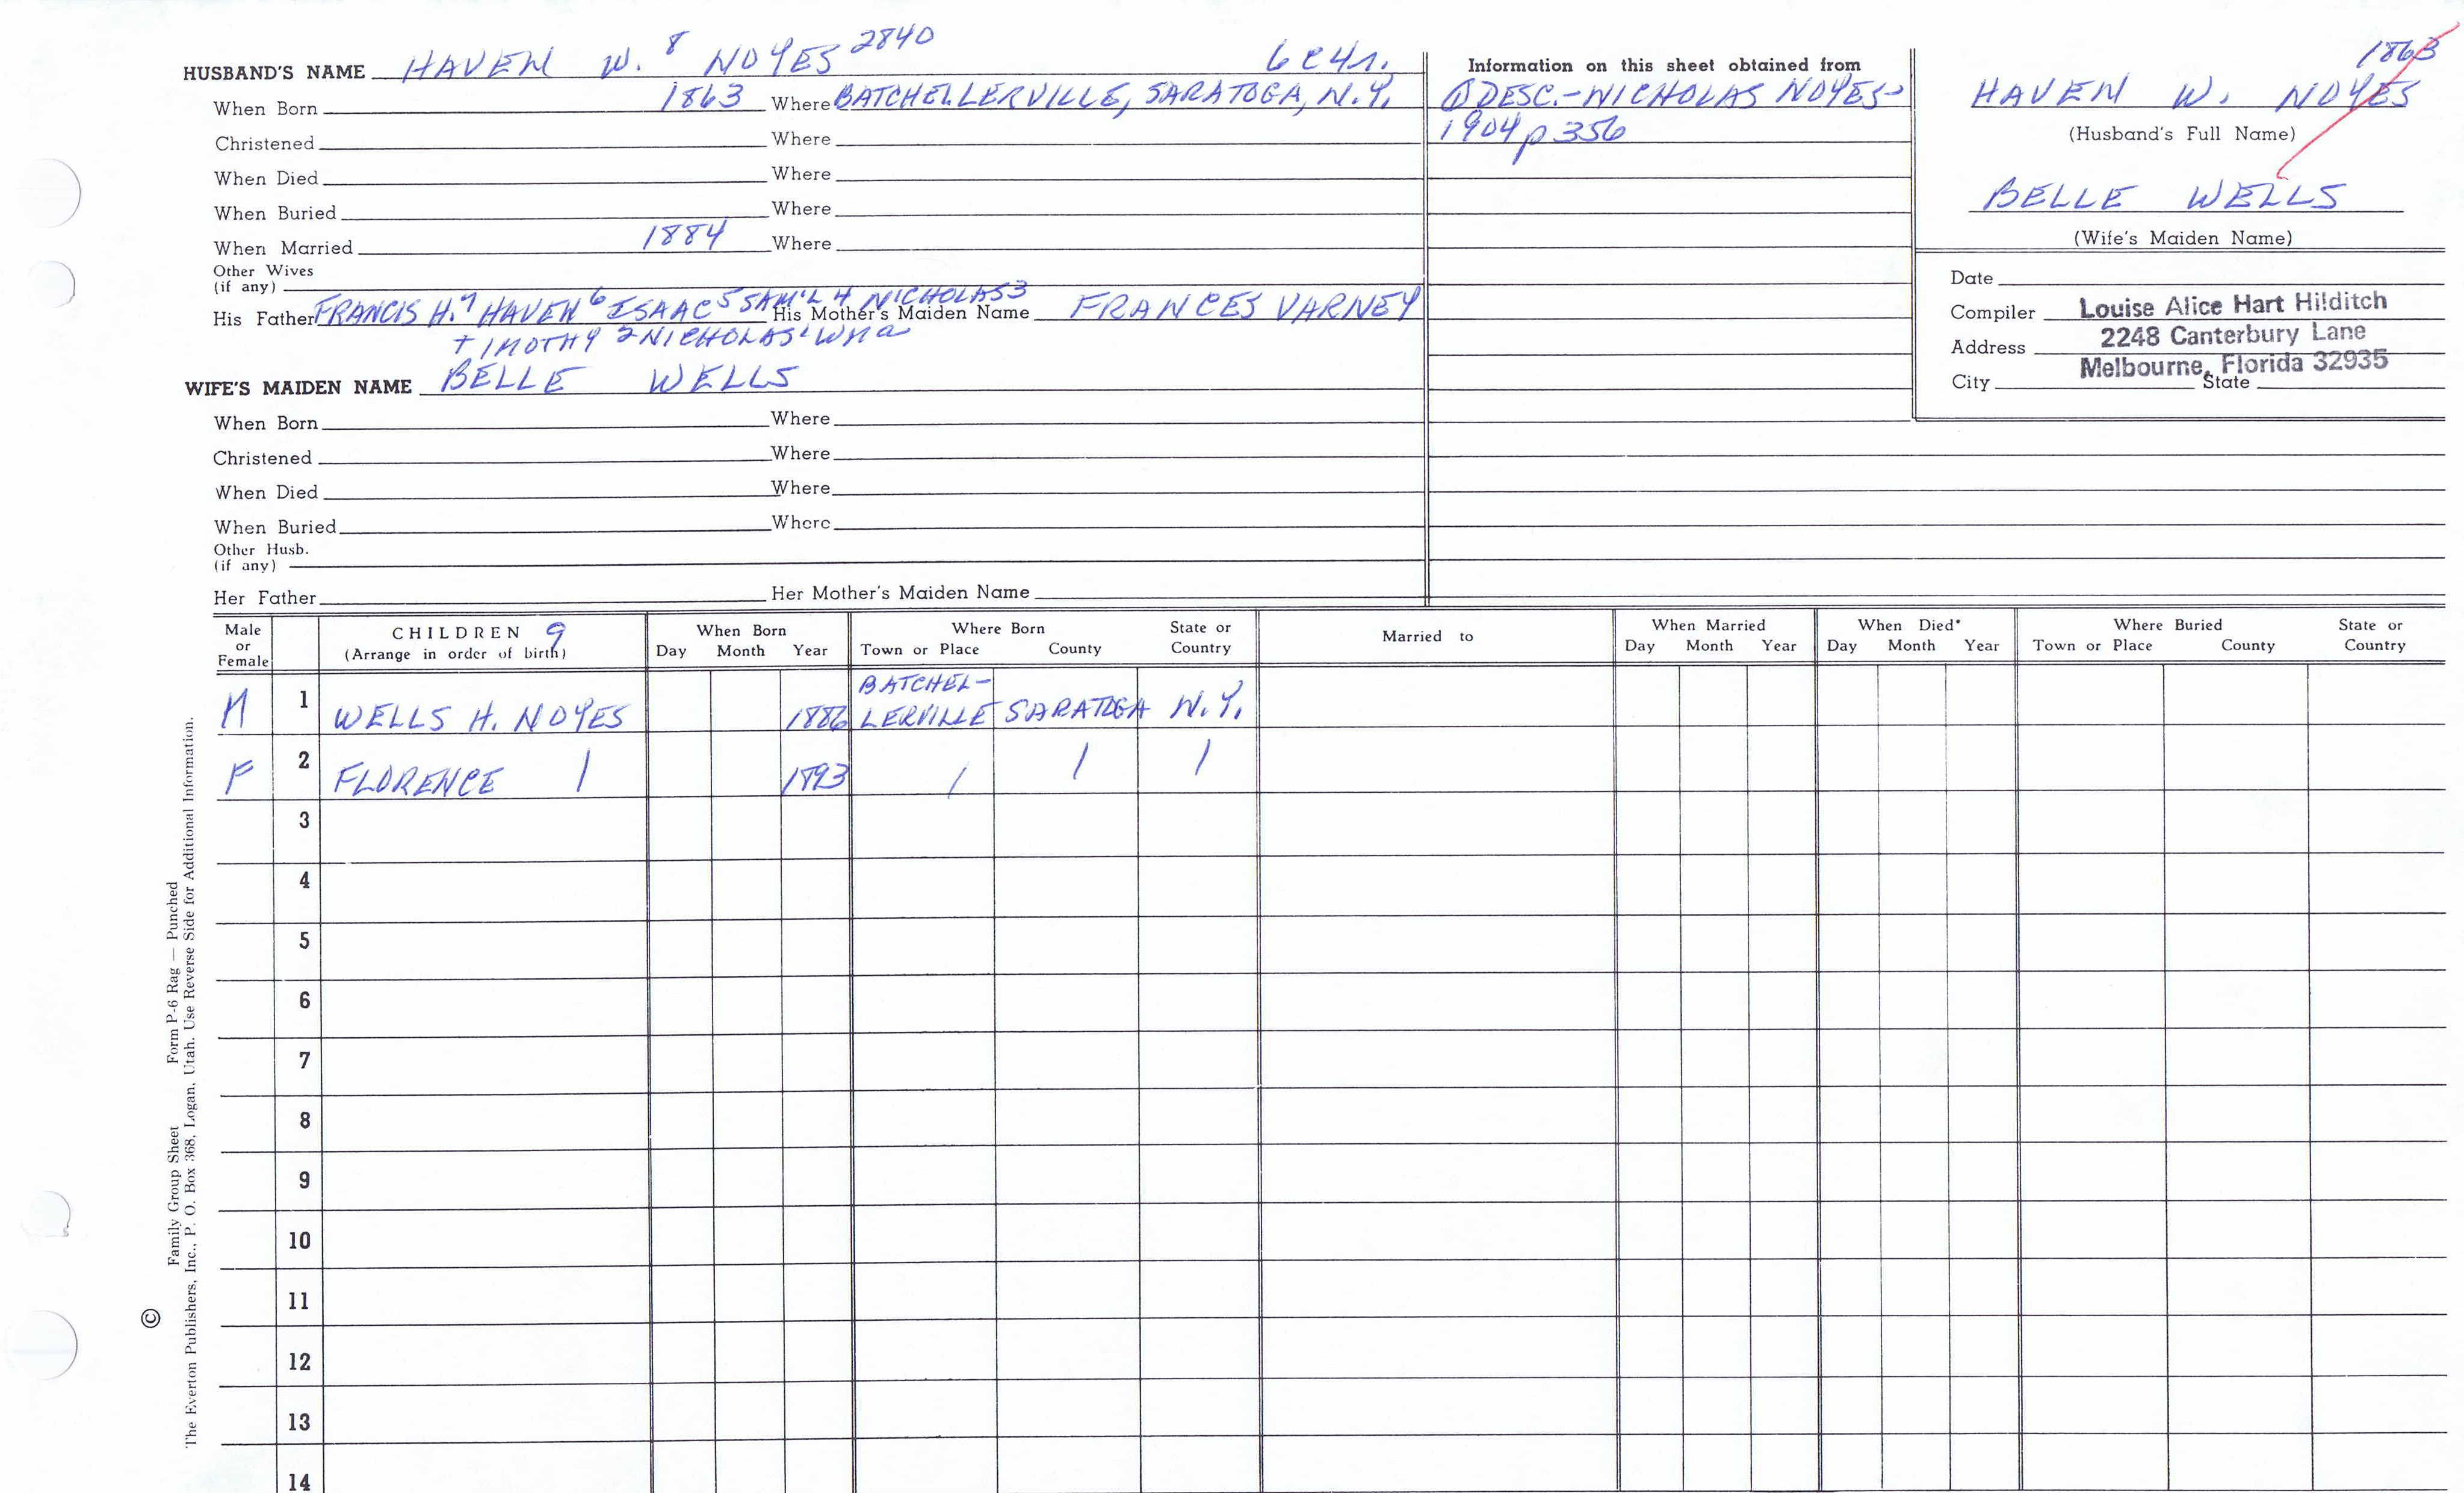 HUSBAND'S NAME HAVEN W. 8 NOYES 2840
When Born 1863 Where BATCHELLERVILLE, SARATOGA, N.Y.
Christened Where
When Died Where
When Buried Where
When Married 1884 Where
Other Wives
(if any)
His Father FRANCIS H.7 HAVEN 6 ISAAC 5 SAM'L 4 NICHOLAS 3 His Mother's Maiden Name FRANCES VARNEY
TIMOTHY 2 NICHOLAS 1 WMa
WIFE'S MAIDEN NAME BELLE WELLS
When Born Where
Christened Where
When Died Where
When Buried Where
Other Husb.
(if any)
Her Father Her Mother's Maiden Name
Information on this sheet obtained from
① DESC.-NICHOLAS NOYES-
1904 p 356
1863
HAVEN W. NOYES
(Husband's Full Name)
BELLE WELLS
(Wife's Maiden Name)
Date
Compiler Louise Alice Hart Hilditch
Address 2248 Canterbury Lane
Melbourne, Florida 32935
City State
Male or Female CHILDREN 9 (Arrange in order of birth) When Born Day Month Year Where Born Town or Place County State or Country Married to When Married Day Month Year When Died* Day Month Year Where Buried Town or Place County State or Country
M 1 WELLS H. NOYES 1886 BATCHEL-
LERVILLE SARATOGA N.Y.
F 2 FLORENCE 1 1893 / / /
3
4
5
6
7
8
9
10
11
12
13
14
Family Group Sheet Form P-6 Rag — Punched
© The Everton Publishers, Inc., P. O. Box 368, Logan, Utah. Use Reverse Side for Additional Information.